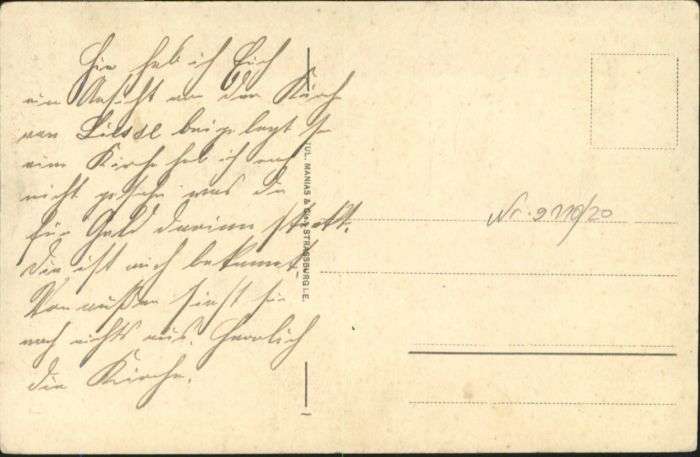 Hier hab ich Euch
ein Ansicht von der Kirche
von Liesse beigelegt so
eine Kirche hab ich noch
nicht gesehn was da
für Geld darinn steckt.
die ist mich bekannt
Von außen sieht sie
noch nichts aus. Herrlich
die Kirche.
JUL. MANIAS & CIE, STRASSBURG I. E.
Nr. 9210/20